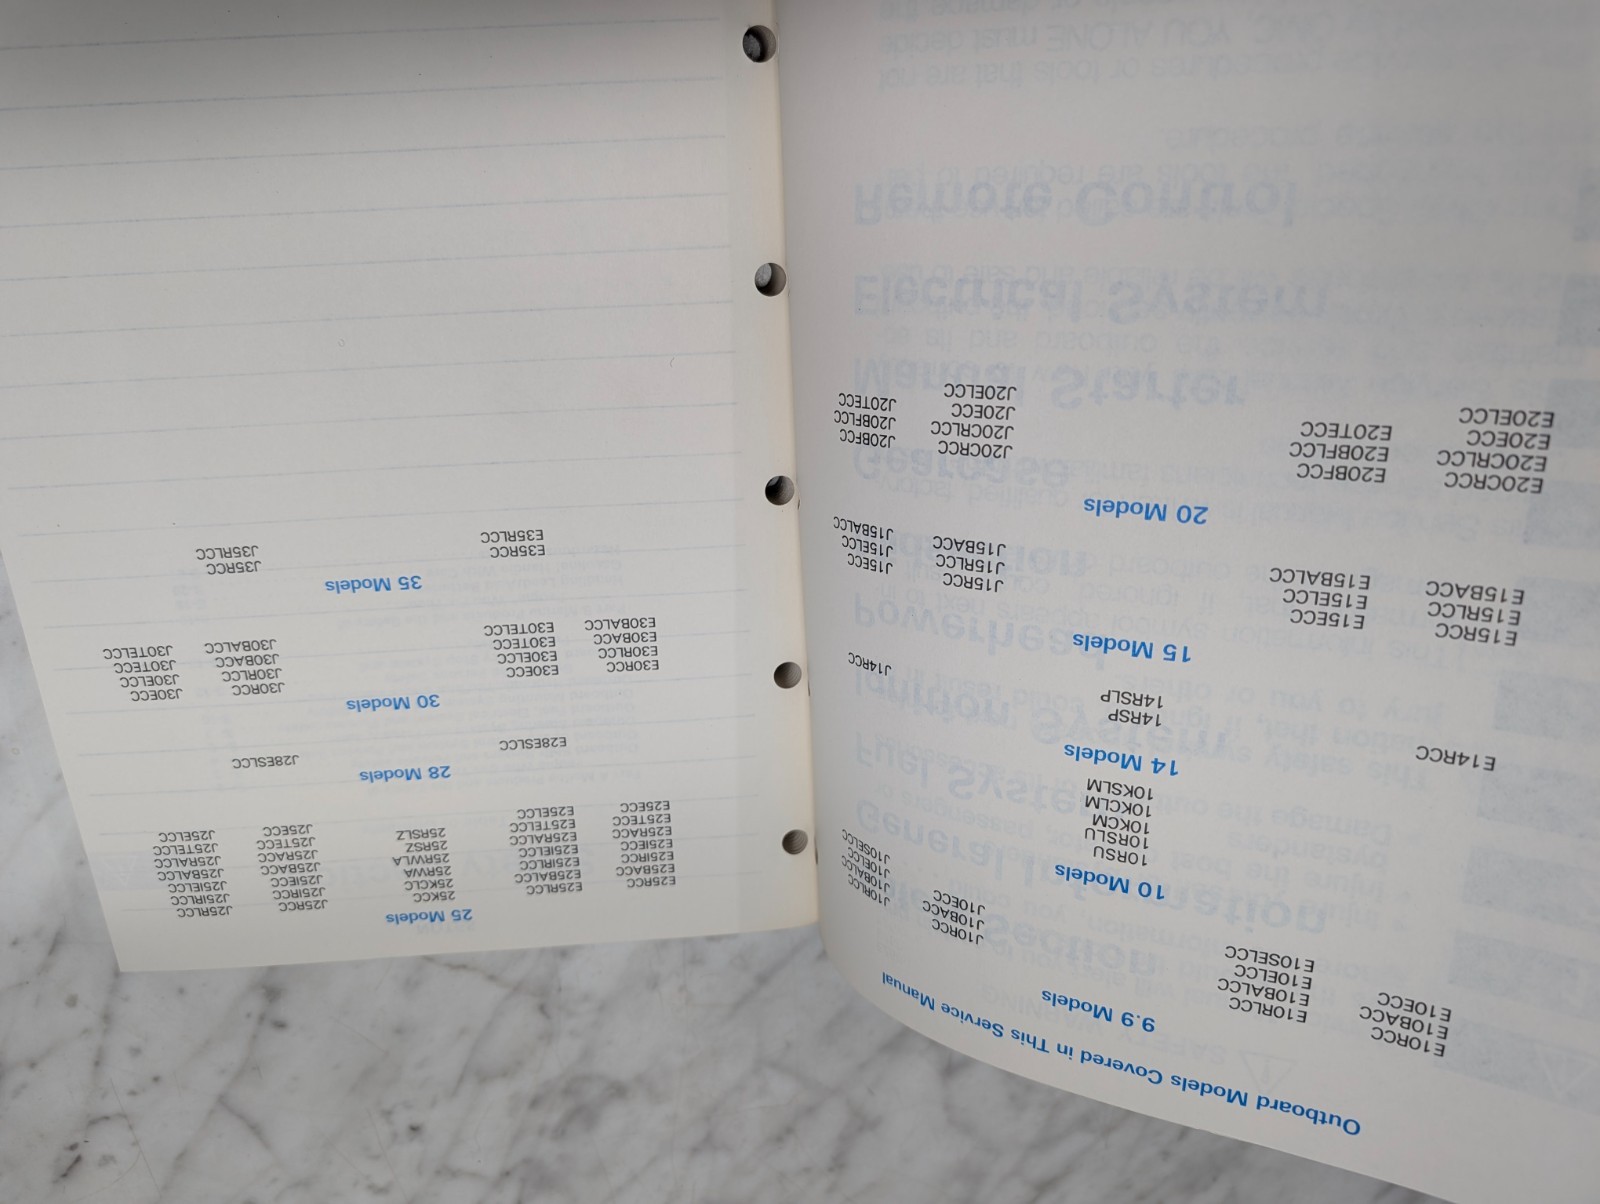 Outboard Models Covered in This Service Manual
9.9 Models
E10RCC E10RLCC J10RCC J10RLCC
E10BACC E10BALCC J10BACC J10BALCC
E10ECC E10ELCC J10ECC J10ELCC
E10SELCC J10SELCC
10 Models
10RSU
10RSLU
10KCM
10KCLM
10KSLM
14 Models
E14RCC 14RSP J14RCC
14RSLP
15 Models
E15RCC E15ECC J15RCC J15ECC
E15RLCC E15ELCC J15RLCC J15ELCC
E15BACC E15BALCC J15BACC J15BALCC
20 Models
E20CRCC E20BFCC J20CRCC J20BFCC
E20CRLCC E20BFLCC J20CRLCC J20BFLCC
E20ECC E20TECC J20ECC J20TECC
E20ELCC J20ELCC
25 Models
E25RCC E25RLCC 25KCC J25RCC J25RLCC
E25BACC E25BALCC 25KCLC J25IRCC J25IRLCC
E25IRCC E25IRLCC 25RWA J25IECC J25IELCC
E25IECC E25IELCC 25RWLA J25BACC J25BALCC
E25RACC E25RALCC 25RSZ J25RACC J25RALCC
E25TECC E25TELCC 25RSLZ J25TECC J25TELCC
E25ECC E25ELCC J25ECC J25ELCC
28 Models
E28ESLCC J28ESLCC
30 Models
E30RCC E30ECC J30RCC J30ECC
E30RLCC E30ELCC J30RLCC J30ELCC
E30BACC E30TECC J30BACC J30TECC
E30BALCC E30TELCC J30BALCC J30TELCC
35 Models
E35RCC J35RCC
E35RLCC J35RLCC